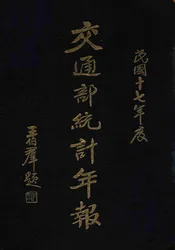 民國十七年度
交通部統計年報
王伯羣題